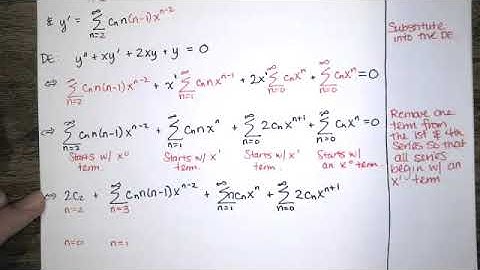 & y' = ∞Σn=2 cₙ n(n-1)xⁿ⁻²
DE: y" + xy' + 2xy + y = 0
⇔ ∞Σn=2 cₙn(n-1)xⁿ⁻² + x¹ ∞Σn=1 cₙnxⁿ⁻¹ + 2x¹ ∞Σn=0 cₙxⁿ + ∞Σn=0 cₙxⁿ = 0
⇔ ∞Σn=2 cₙn(n-1)xⁿ⁻² + ∞Σn=1 cₙnxⁿ + ∞Σn=0 2cₙxⁿ⁺¹ + ∞Σn=0 cₙxⁿ = 0
Starts w/ x⁰ term.
Starts w/ x¹ term.
Starts w/ x¹ term.
Starts w/ an x⁰ term
⇔ 2c₂ + ∞Σn=3 cₙn(n-1)xⁿ⁻² + ∞Σn=1 ncₙxⁿ + ∞Σn=0 2cₙxⁿ⁺¹
n=2
n=0 n=1
Substitute
into the DE
Remove one
term from
the 1st & 4th
series so that
all series
begin w/ an
x¹ term